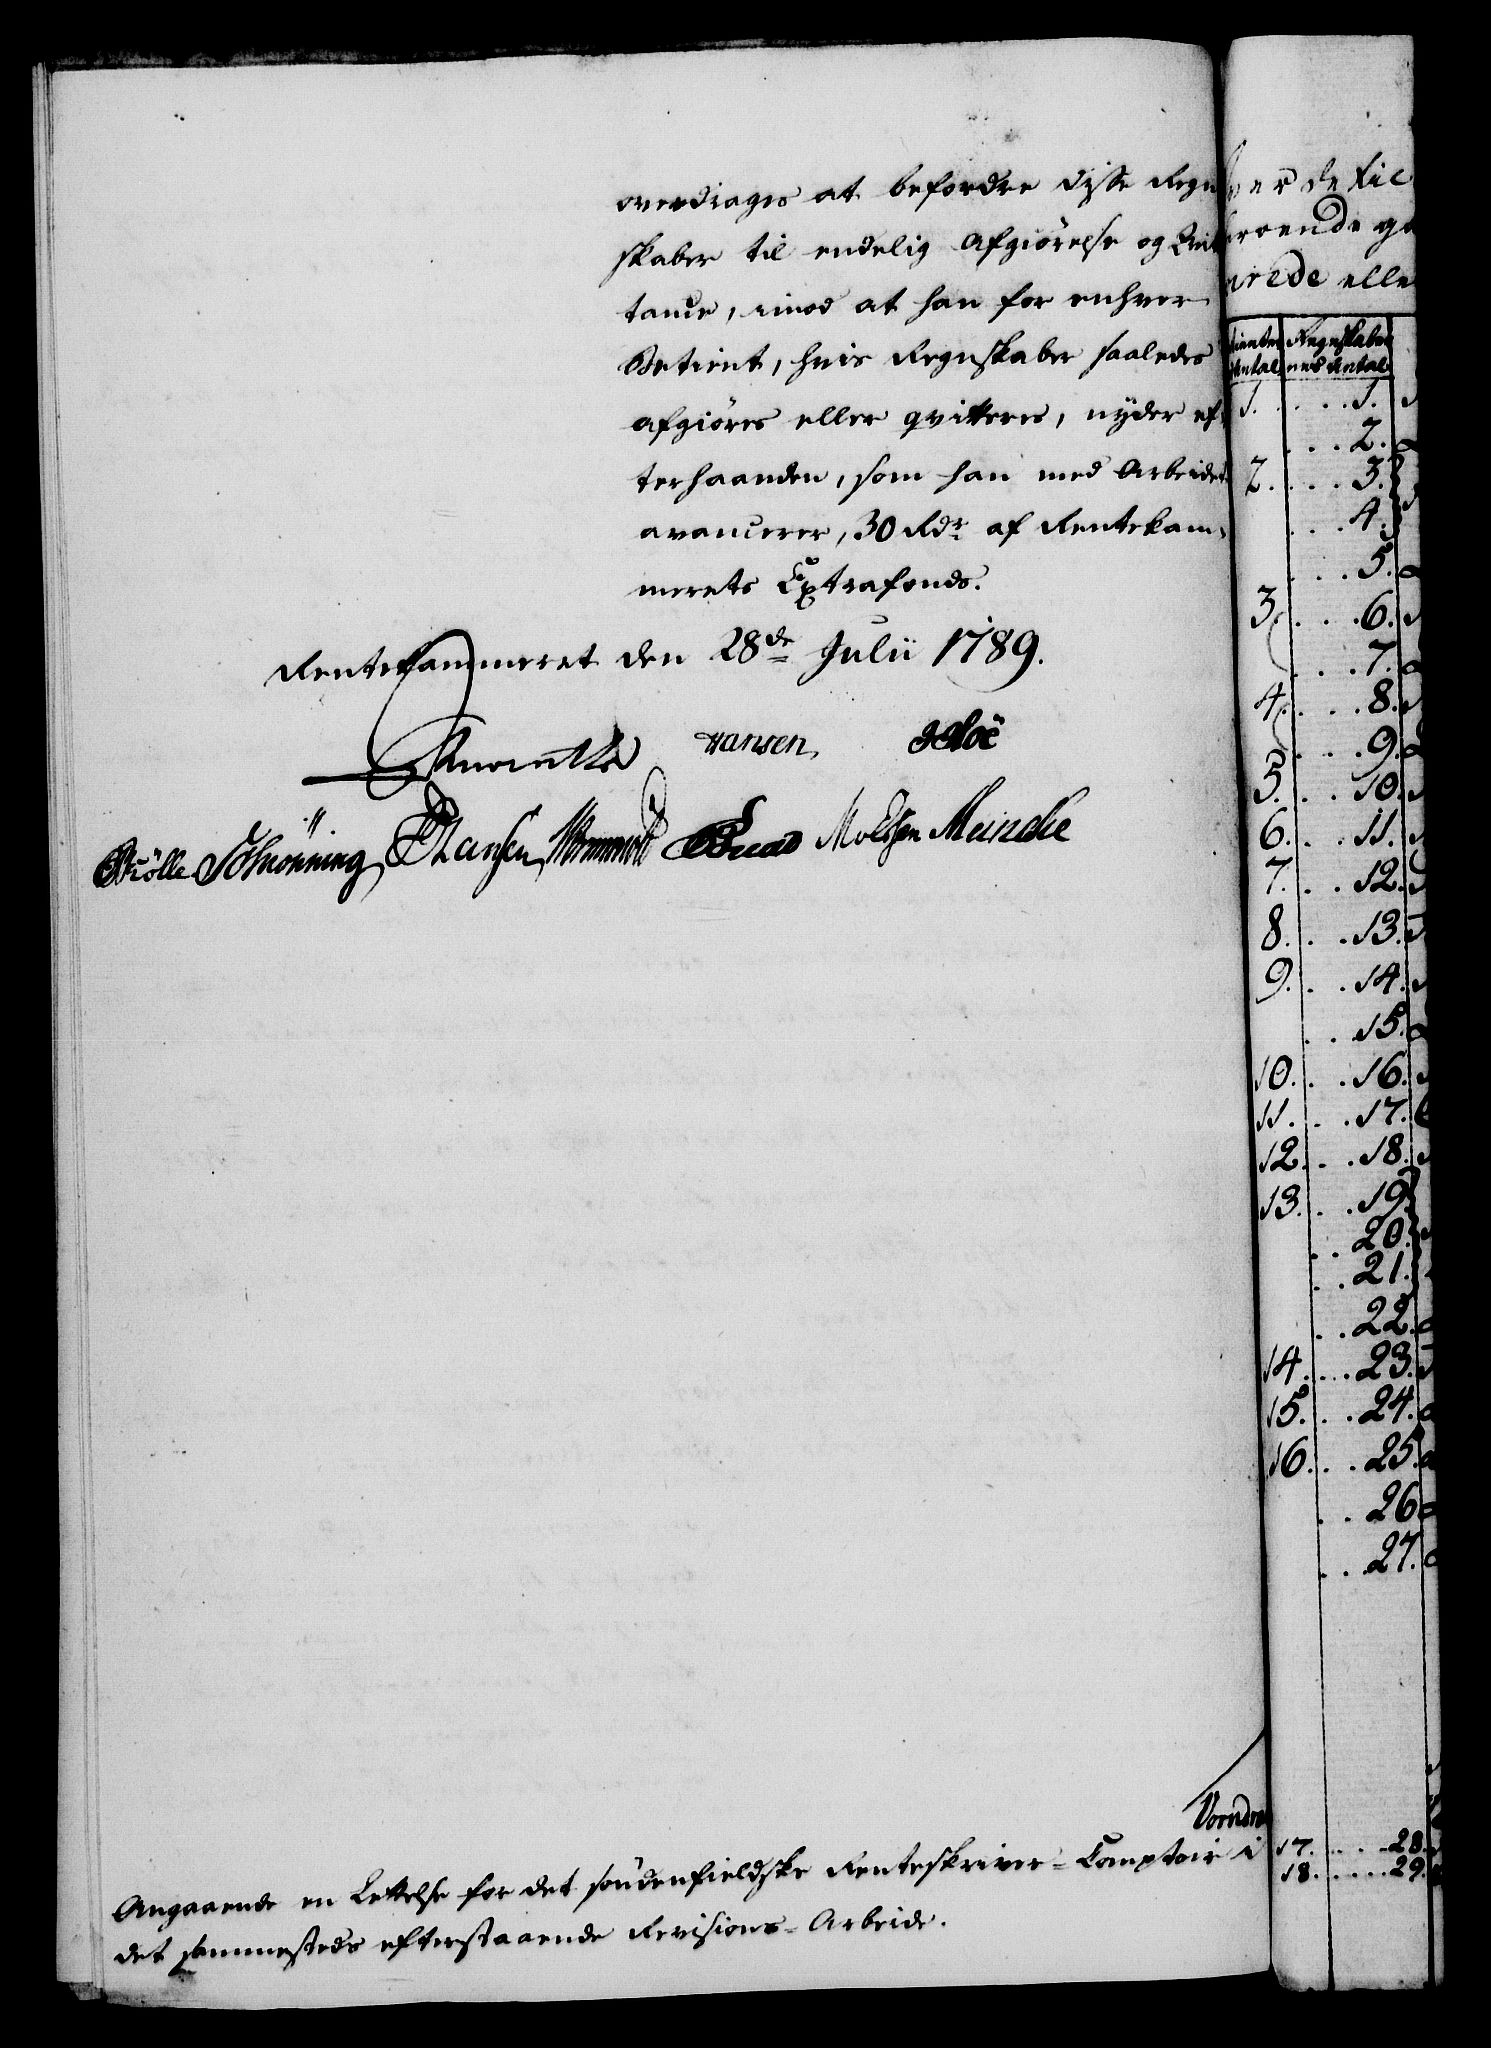 overdrages at befordre disse Regn
skaber til endelig Afgiørelse og Qvit
tance, imod at han for enhver
Betient, hvis Regnskaber saaledes
afgiøres eller qvitteres, nyder ef-
terhaanden, som han med Arbeidet
avancerer, 30 Rdr. af Rentekam-
merets Extrafonds.
Rentekammeret den 28de Julii 1789.
Hansen
Schønning Hansen Meincke
Vendes
Angaaende en Lettelse for det søndenfieldske Renteskriver-Comptoir i
det sammesteds efterstaaende Revisions-Arbeide.
ver de til
roende
irede elle
tienter Regnskaber
Antal nes Antal
1. . . . 1.
. . . 2.
2. . . . 3.
. . . 4.
. . . 5.
3. . . . 6.
. . . 7.
4. . . . 8.
. . . 9.
5. . . . 10.
6. . . . 11.
7. . . . 12.
8. . . . 13.
9. . . . 14.
. . 15.
10. . . . 16.
11. . . . 17.
12. . . . 18.
13. . . . 19.
. . 20.
. . 21.
. . 22.
14. . . . 23.
15. . . . 24.
16. . . . 25.
. . 26
. . . 27.
17. . . . . 28.
18. . . . . 29.